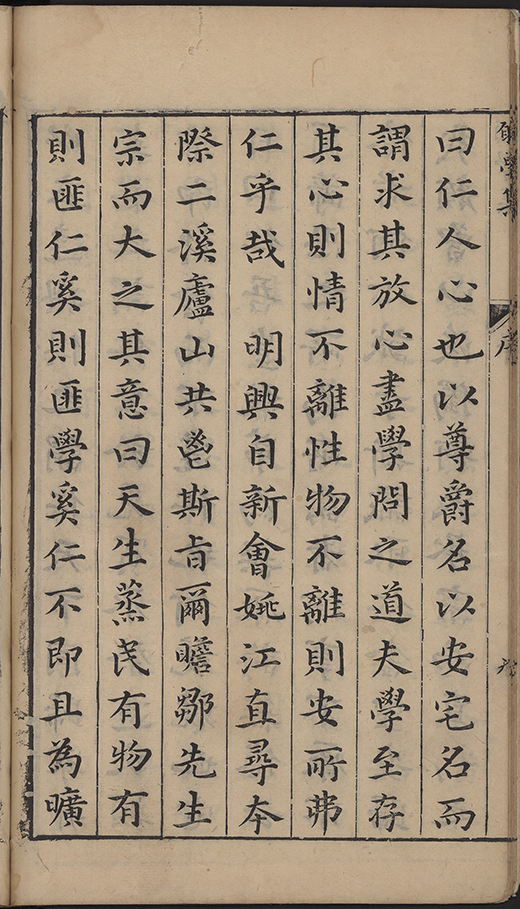 曰仁人心也以尊爵名以安宅名而
謂求其放心盡學問之道夫學至存
其心則情不離性物不離則安所弗
仁乎哉　明興自新會姚江直尋本
際二溪廬山共鬯斯旨爾瞻鄒先生
宗而大之其意曰天生蒸民有物有
則匪仁奚則匪學奚仁不即且為曠
學集
序